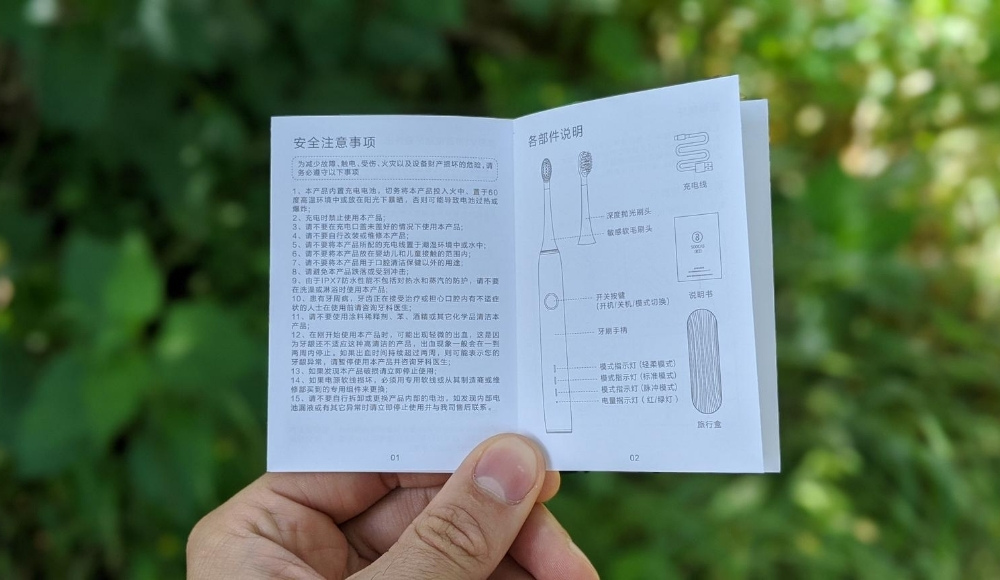 安全注意事项
为减少故障、触电、受伤、火灾以及设备财产损坏的危险,请
务必遵守以下事项
1、本产品内置充电电池,切务将本产品投入火中、置于60
度高温环境中或放在阳光下暴晒,否则可能导致电池过热或
爆炸;
2、充电时禁止使用本产品;
3、请不要在充电口盖未盖好的情况下使用本产品;
4、请不要自行改装或维修本产品;
5、请不要将本产品所配的充电线置于潮湿环境中或水中;
6、请不要将本产品放在婴幼儿和儿童接触的范围内;
7、请不要将本产品用于口腔清洁保健以外的用途;
8、请避免本产品跌落或受到冲击;
9、由于IPX7防水性能不包括对热水和蒸汽的防护,请不要
在洗澡或淋浴时使用本产品;
10、患有牙周病、牙齿正在接受治疗或担心口腔内有不适症
状的人士在使用前请咨询牙科医生;
11、请不要使用涂料稀释剂、苯、酒精或其它化学品清洁本
产品;
12、在刚开始使用本产品时,可能出现轻微的出血,这是因
为牙龈还不适应这种高清洁的产品,出血现象一般会在一到
两周内停止。如果出血时间持续超过两周,则可能表示您的
牙龈异常,请暂停使用本产品并咨询牙科医生;
13、如果发现本产品破损请立即停止使用;
14、如果电源软线损坏,必须用专用软线或从其制造商或维
修部买到的专用组件来更换;
15、请不要自行拆卸或更换产品内部的电池,如发现内部电
池漏液或有其它异常时请立即停止使用并与我司售后联系。
01
各部件说明
充电线
深度抛光刷头
敏感软毛刷头
说明书
开关按键
(开机/关机/模式切换)
牙刷手柄
模式指示灯 (轻柔模式)
模式指示灯 (标准模式)
模式指示灯 (脉冲模式)
电量指示灯 ( 红/绿灯 )
旅行盒
02